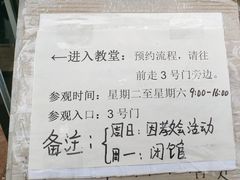 ←进入教堂：预约流程，请往
前走 3 号门旁边。
参观时间：星期二至星期六 9:00-16:00
参观入口：3 号门
备注：
周日：因教会活动
周一：闭馆